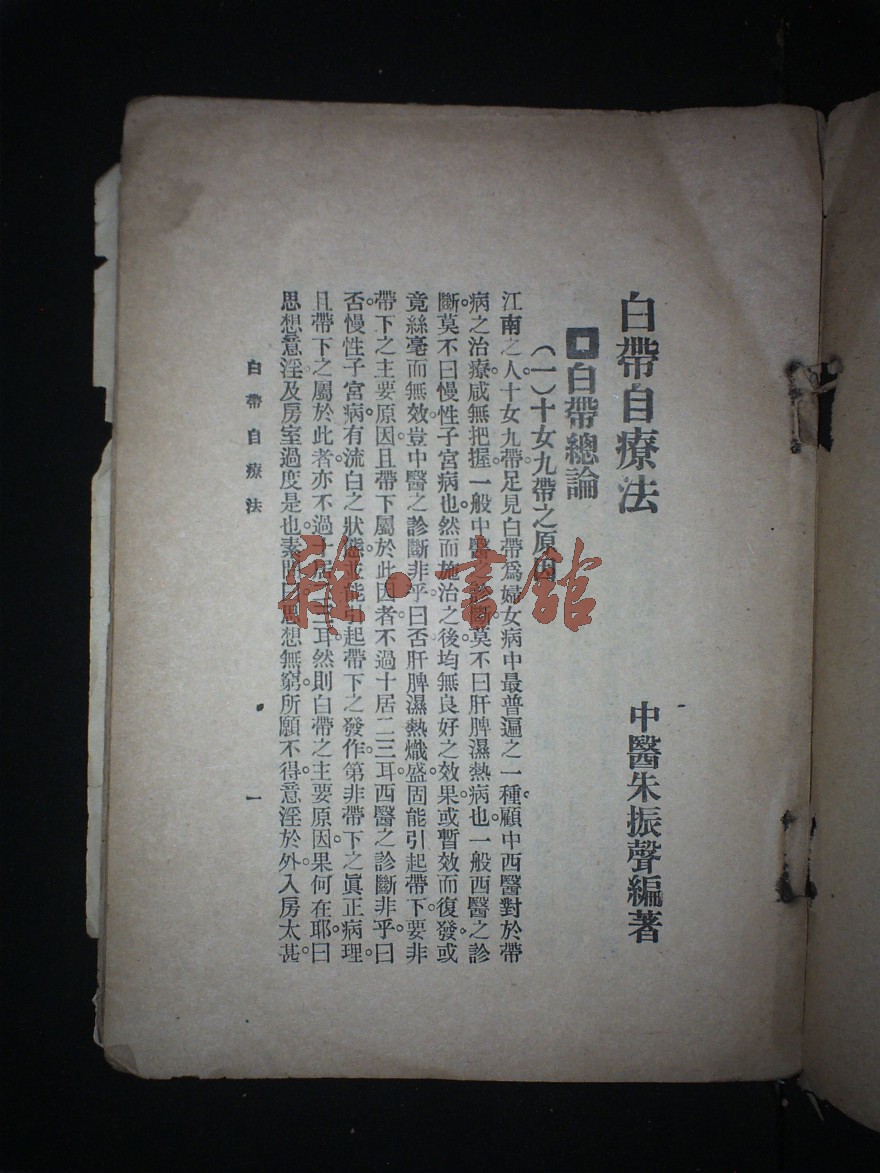 白帶自療法
中醫朱振聲編著
白帶總論
(一)十女九帶之原因
江南之人十女九帶。足見白帶爲婦女病中最普遍之一種。顧中西醫對於帶
病之治療。咸無把握。一般中醫之診斷。莫不曰肝脾濕熱病也。一般西醫之診
斷。莫不曰慢性子宮病也。然而施治之後。均無良好之效果。或暫效而復發。或
竟絲毫而無效。豈中醫之診斷非乎。曰否。肝脾濕熱熾盛。固能引起帶下。要非
帶下之主要原因。且帶下屬於此因者。不過十居二三耳。西醫之診斷非乎。曰
否。慢性子宮病。有流白之狀態。能引起帶下之發作。第非帶下之眞正病理。
且帶下之屬於此者。亦不過十居二三耳。然則白帶之主要原因。果何在耶。曰。
思想意淫及房室過度是也。素問曰。思想無窮。所願不得。意淫於外。入房太甚。
白帶自療法
一
雜·書館